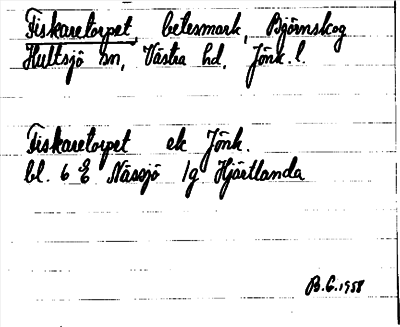 Fiskaretorpet, betesmark, Björnskog
Hultsjö sn, Västra hd, Jönk. l.
Fiskaretorpet ek Jönk.
bl. 6 E Nässjö 1g Hjärtlanda
B.G. 1958